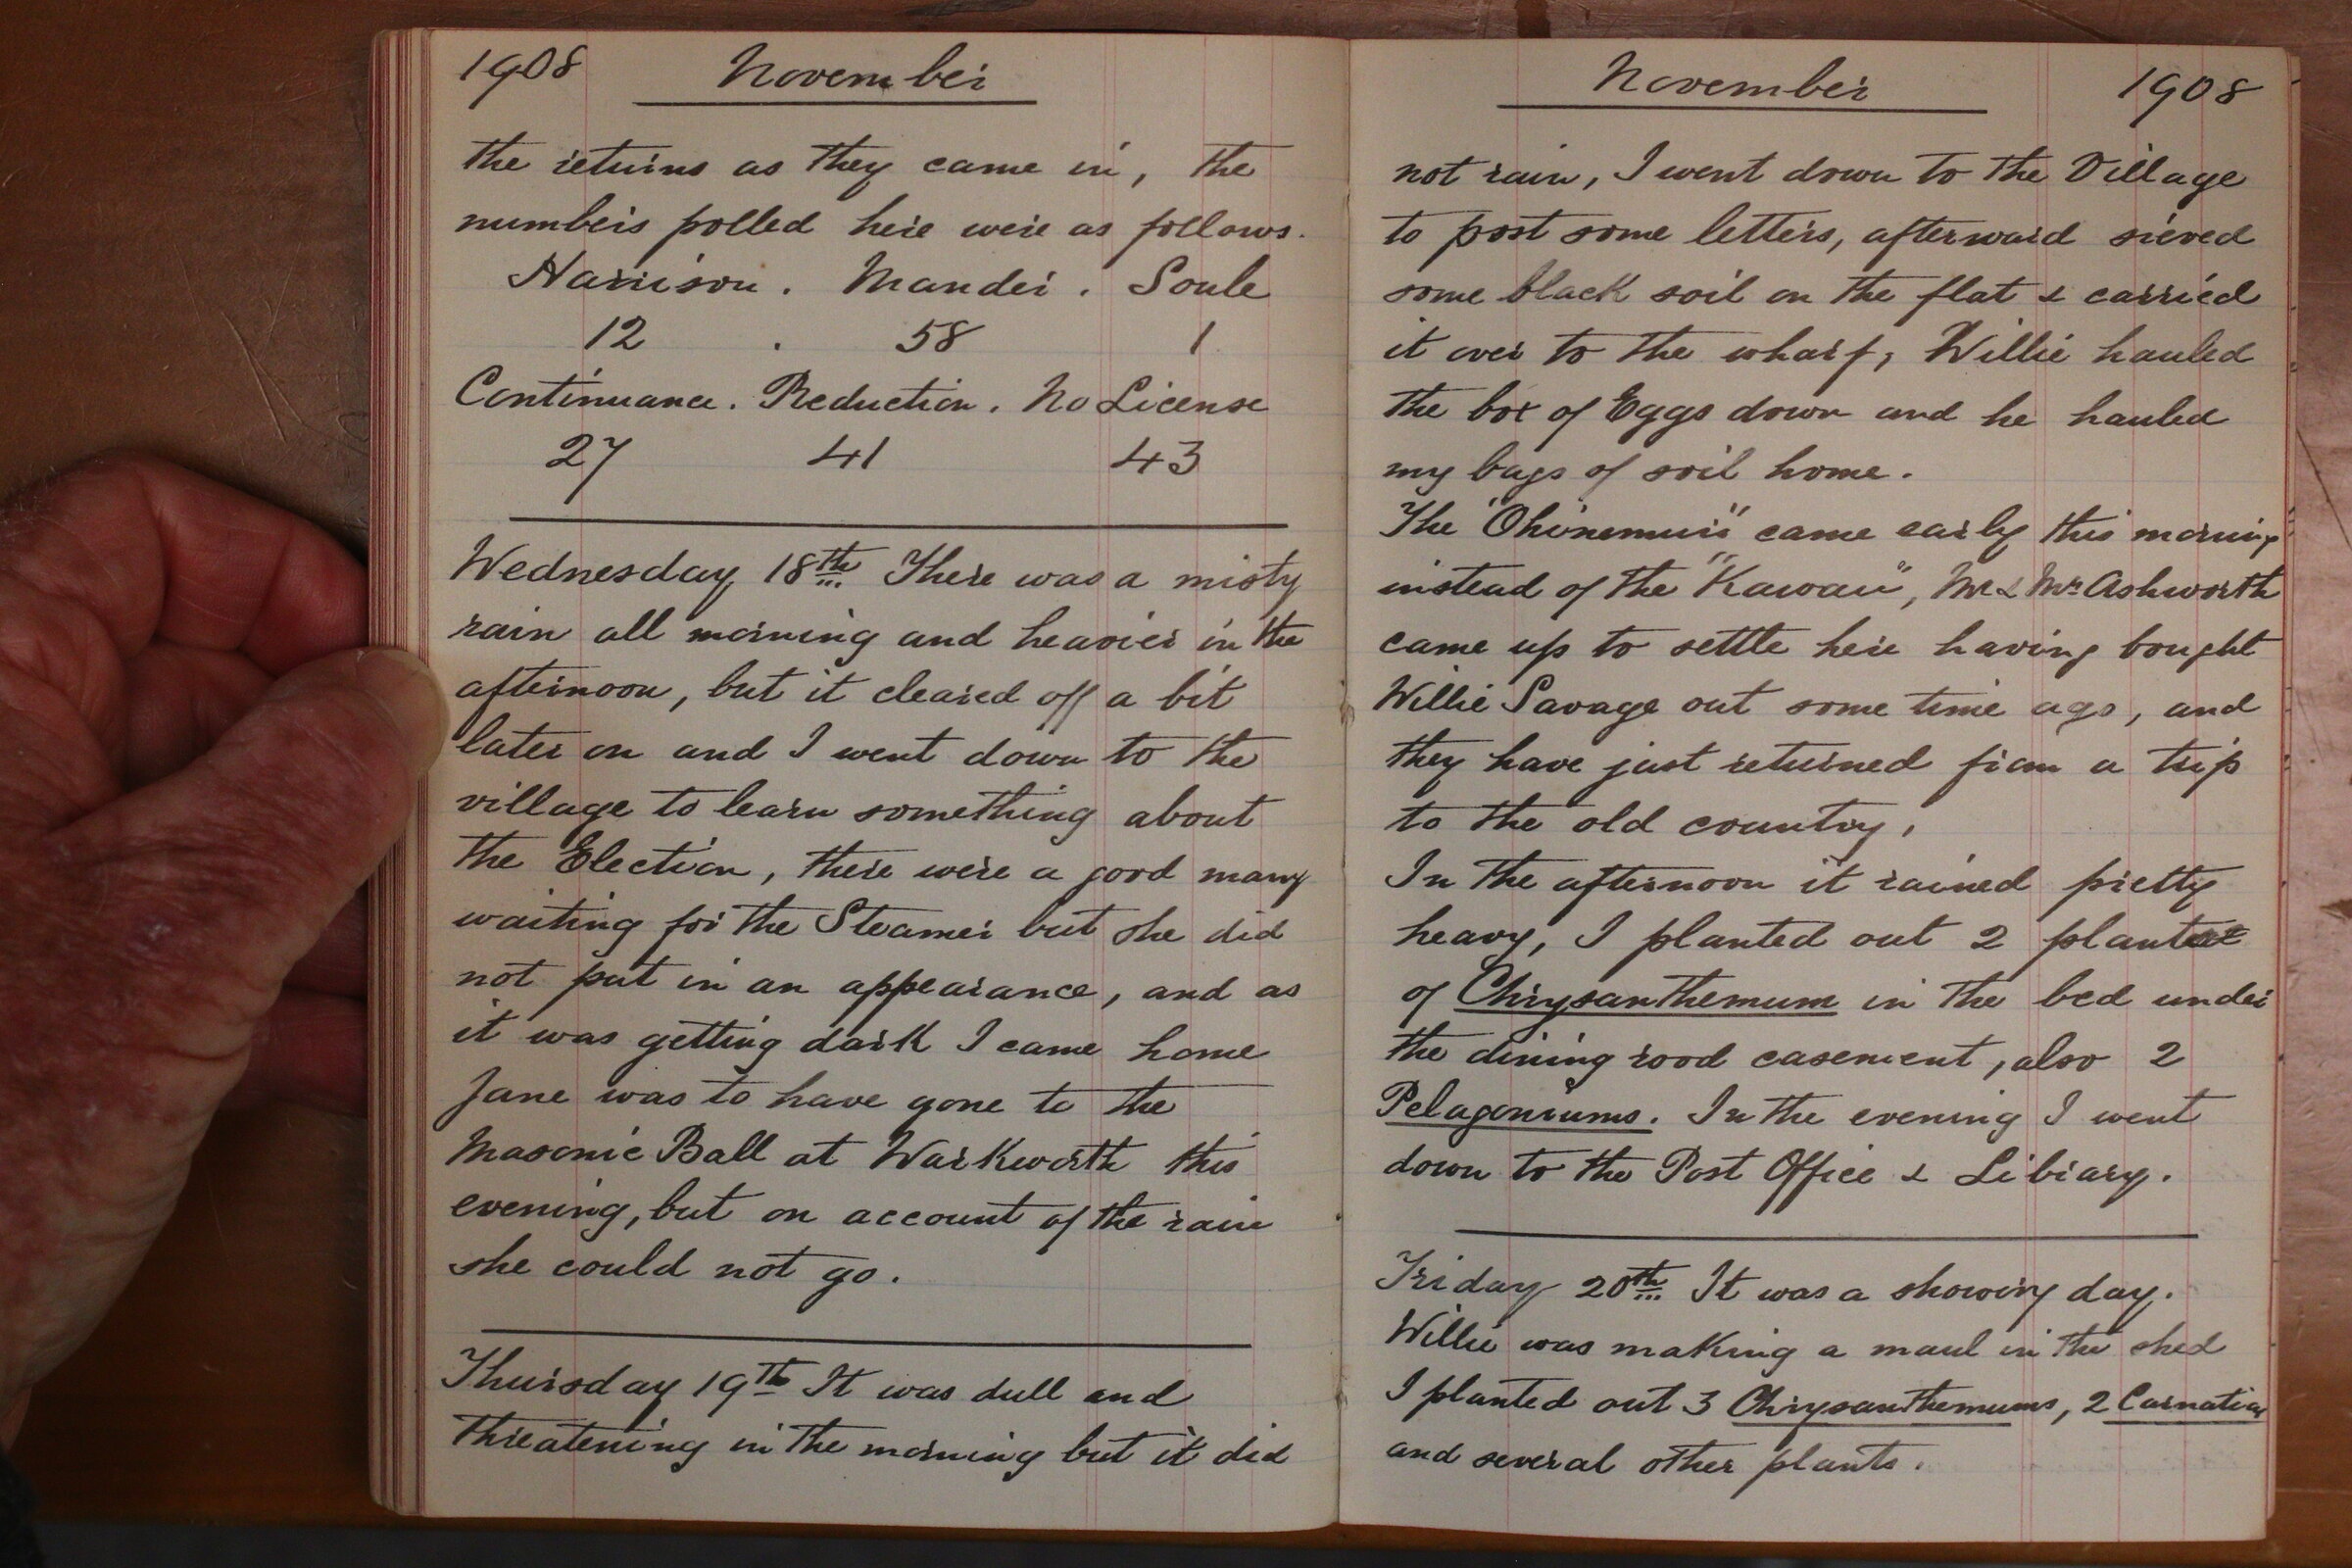 1908 November
the returns as they came in, the
numbers polled here were as follows.
Harrison. Mander. Soule
12 . 58 1
Continuance. Reduction. No License
27 41 43
Wednesday 18th There was a misty
rain all morning and heavier in the
afternoon, but it cleared off a bit
later on and I went down to the
village to learn something about
the Election, there were a good many
waiting for the Steamer but she did
not put in an appearance, and as
it was getting dark I came home
Jane was to have gone to the
Masonic Ball at Warkworth this
evening, but on account of the rain
she could not go.
Thursday 19th It was dull and
threatening in the morning but it did
November 1908
not rain, I went down to the Village
to post some letters, afterward sieved
some black soil on the flat & carried
it over to the wharf, Willie hauled
the box of Eggs down and he hauled
my bags of soil home.
The "Ohinemuri" came early this morning
instead of the "Kawau", Mr & Mrs Ashworth
came up to settle here having bought
Willie Savage out some time ago, and
they have just returned from a trip
to the old country,
In the afternoon it rained pretty
heavy, I planted out 2 plants
of Chrysanthemum in the bed under
the dining rood casement, also 2
Pelagoniums. In the evening I went
down to the Post Office & Library.
Friday 20th It was a showiry day.
Willie was making a maul in the shed
I planted out 3 Chrysanthemums, 2 Carnation
and several other plants.